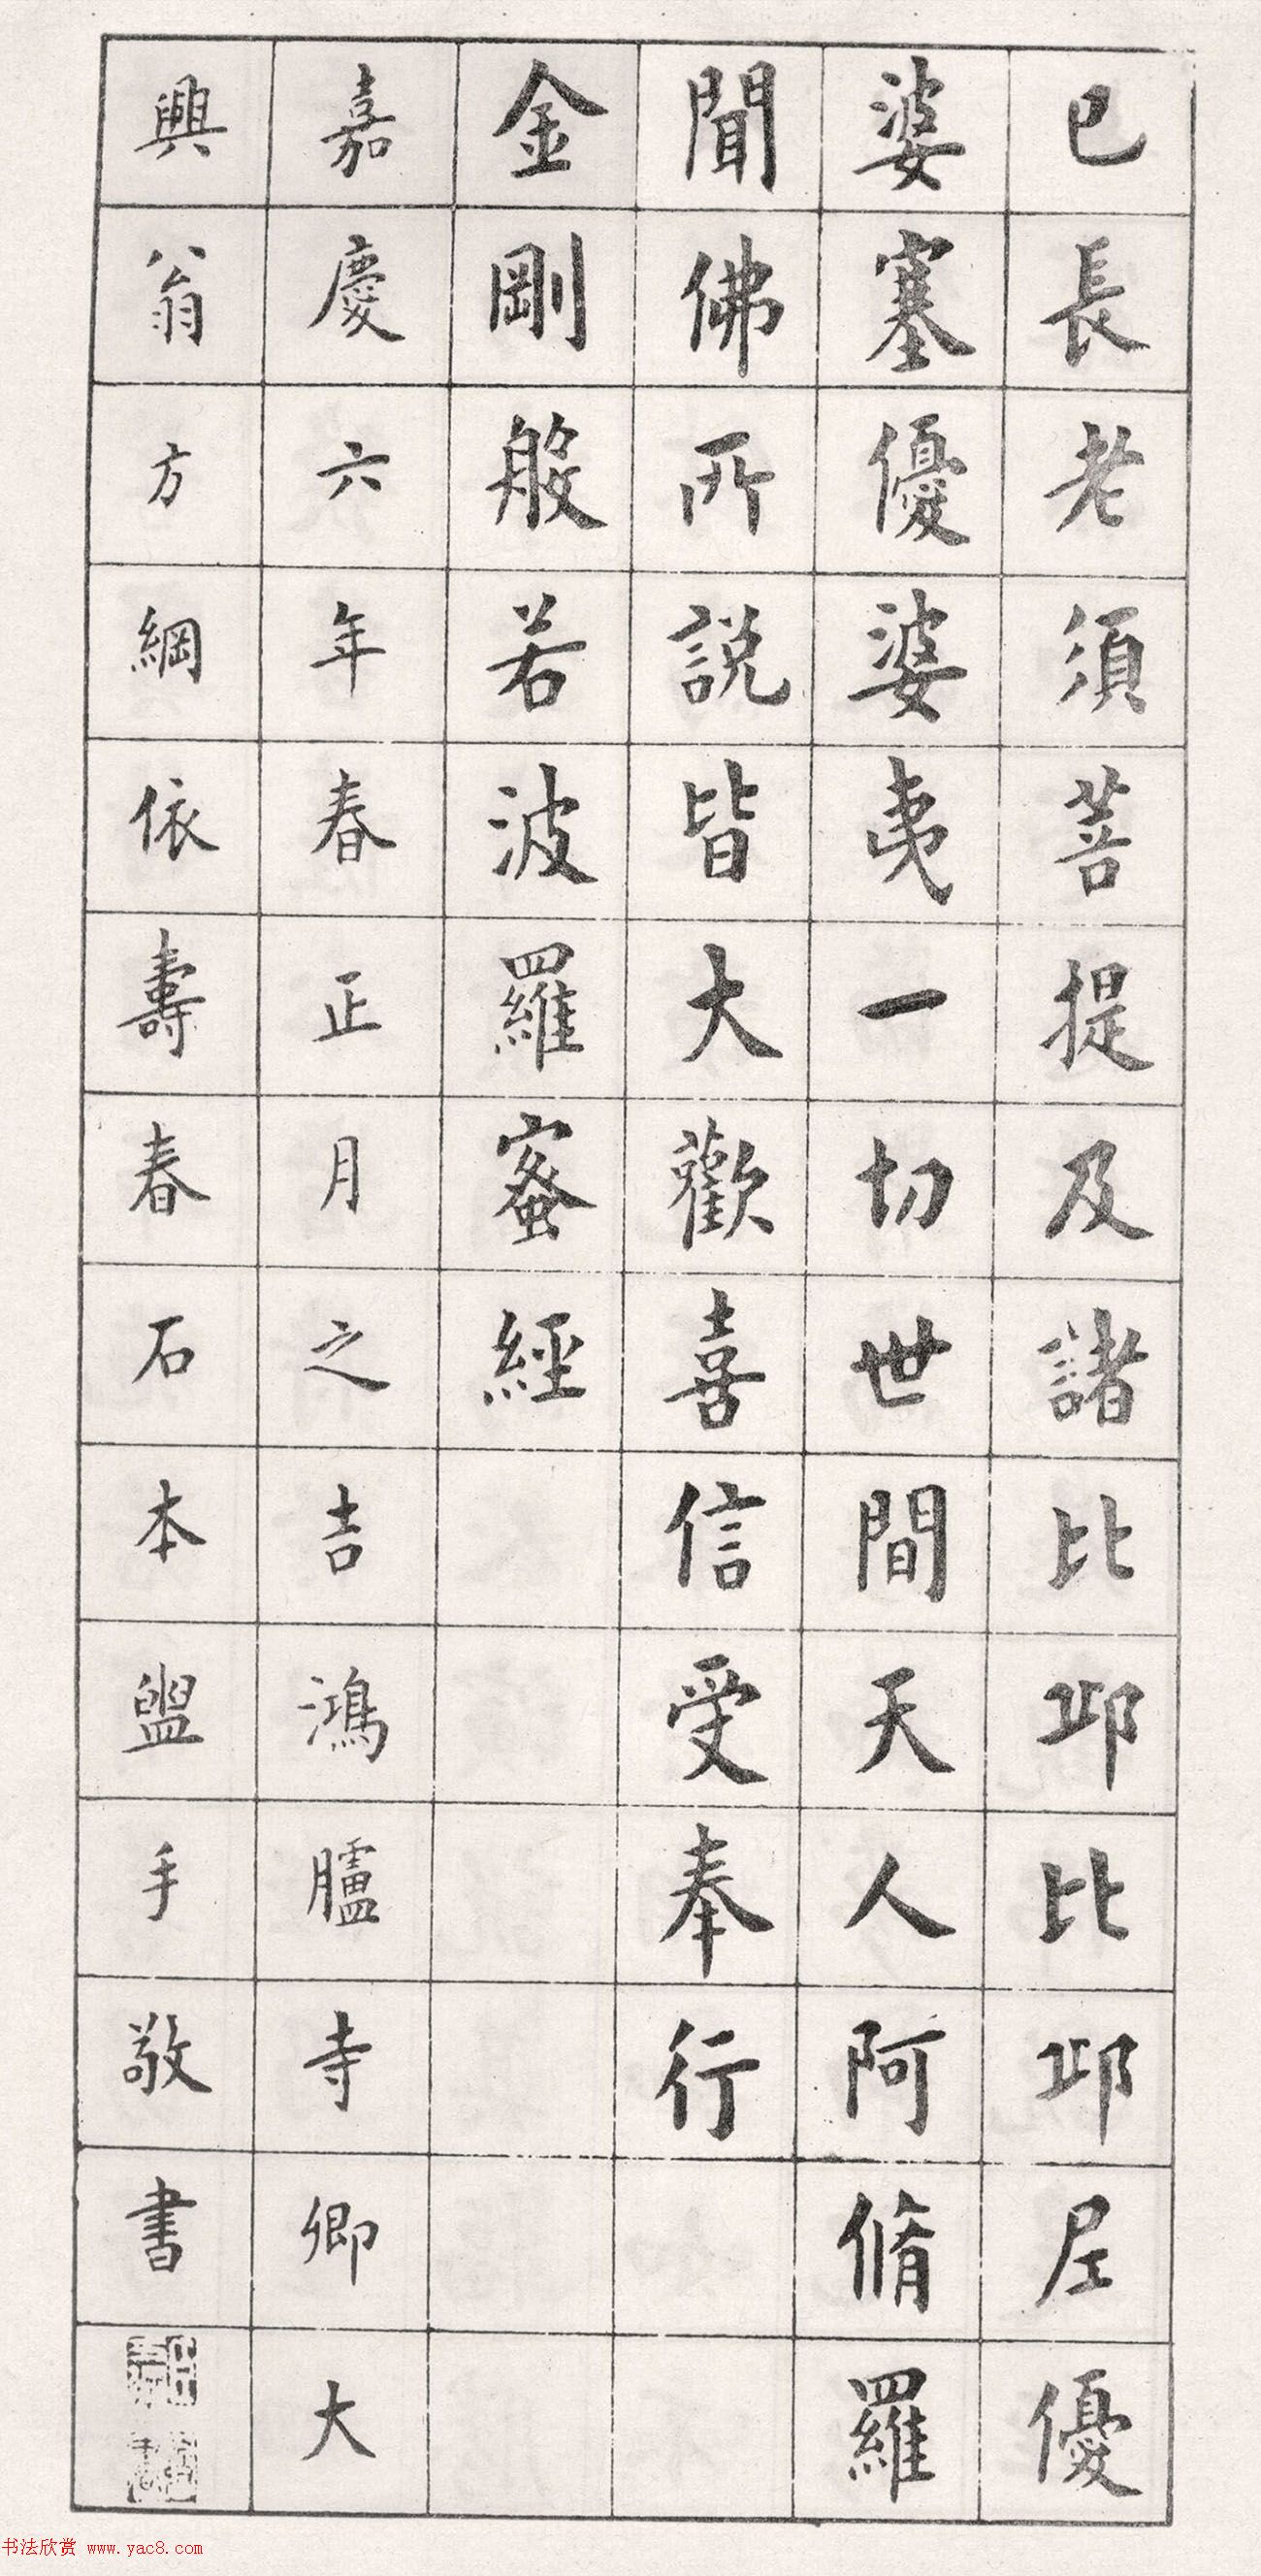 已長老須菩提及諸比邱比邱尼優
婆塞優婆夷一切世間天人阿脩羅
聞佛所說皆大歡喜信受奉行
金剛般若波羅蜜經
嘉慶六年春正月之吉鴻臚寺卿大
興翁方綱依壽春石本盥手敬書
书法欣赏 www.yac8.com